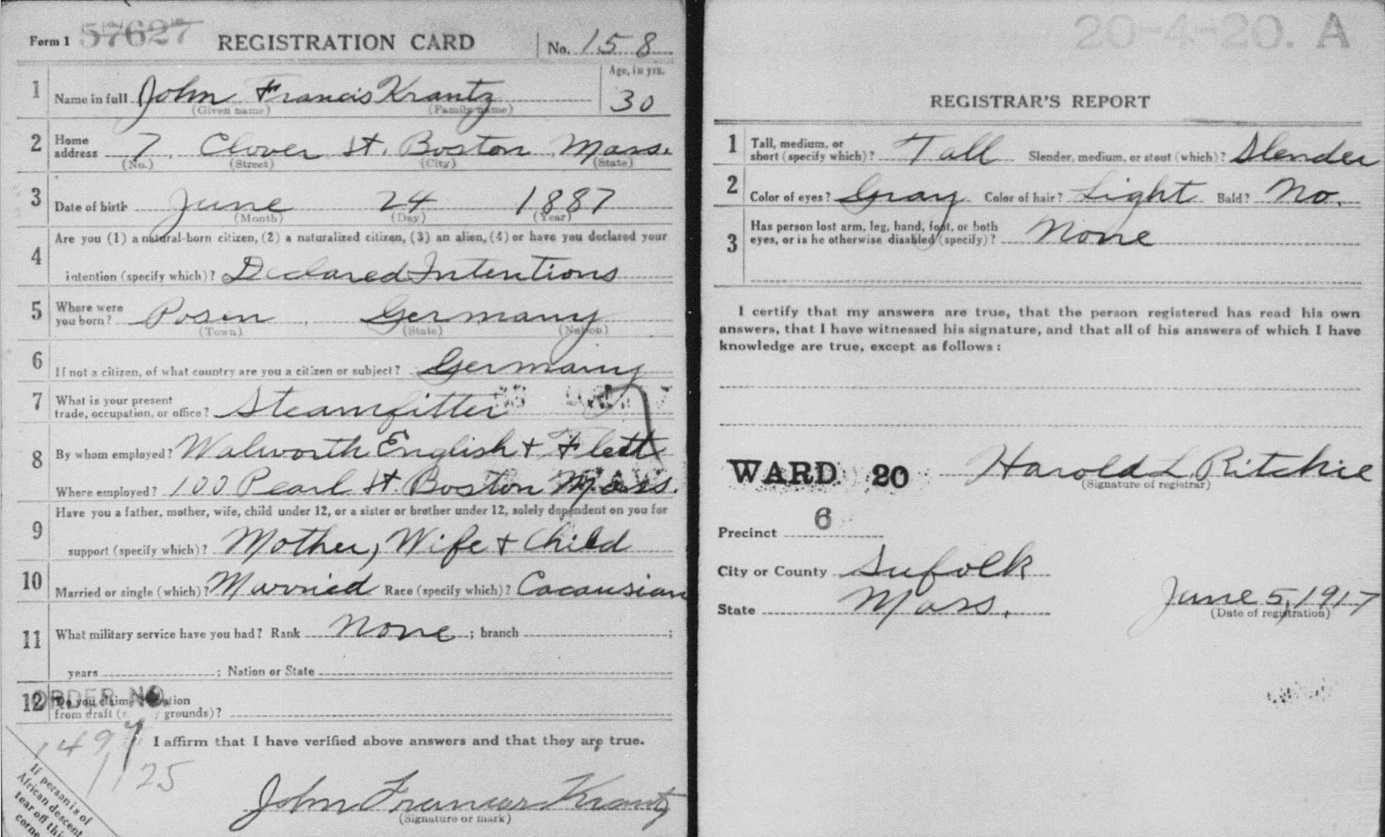 Form 1 57627 REGISTRATION CARD No. 158
1 Name in full John Francis Krantz Age, in yrs. 30
(Given name) (Family name)
2 Home address 7, Clover St. Boston Mass.
(No.) (Street) (City) (State)
3 Date of birth June 24 1887
(Month) (Day) (Year)
4 Are you (1) a natural-born citizen, (2) a naturalized citizen, (3) an alien, (4) or have you declared your
intention (specify which)? Declared Intentions
5 Where were you born? Posen, Germany
(Town) (State) (Nation)
6 If not a citizen, of what country are you a citizen or subject? Germany
7 What is your present trade, occupation, or office? Steamfitter
8 By whom employed? Walworth English + Flett
Where employed? 100 Pearl St Boston Mass.
9 Have you a father, mother, wife, child under 12, or a sister or brother under 12, solely dependent on you for
support (specify which)? Mother, Wife + Child
10 Married or single (which)? Married Race (specify which)? Cacausian
11 What military service have you had? Rank None ; branch ;
years ; Nation or State
ORDER NO.
12 Do you claim
from draft ( grounds)?
I affirm that I have verified above answers and that they are true.
1125
John Francis Krantz
(Signature or mark)
If person is of
African descent
tear off this
corner
20-4-20. A
REGISTRAR'S REPORT
1 Tall, medium, or short (specify which)? Tall Slender, medium, or stout (which)? Slender
2 Color of eyes? Gray Color of hair? Light Bald? No.
3 Has person lost arm, leg, hand, foot, or both eyes, or is he otherwise disabled (specify)? None
I certify that my answers are true, that the person registered has read his own
answers, that I have witnessed his signature, and that all of his answers of which I have
knowledge are true, except as follows:
WARD 20 Harold L Ritchie
(Signature of registrar)
Precinct 6
City or County Sufolk
State Mass. June 5, 1917
(Date of registration)